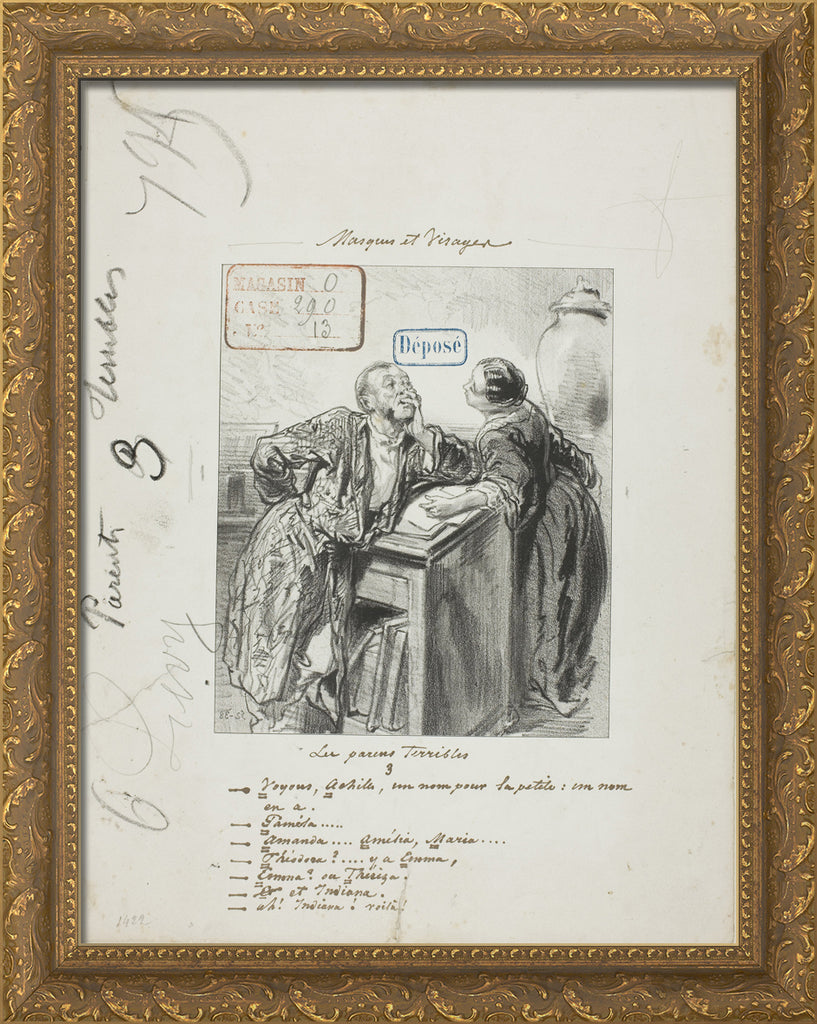 795
Masques et Visages
MAGASIN 0
CASE 290
N° 13
Déposé
Parents 3 Terribles
6
Les parens Terribles
3
— Voyons, Achille, un nom pour la petite : un nom
en a.
— Paméla.....
— Amanda.... Amélia, Maria....
— Théodora ?.... y a Emma,
— Emma ? ou Thérèza.
— et Indiana.
— ah ! Indiana ! voilà !
1422